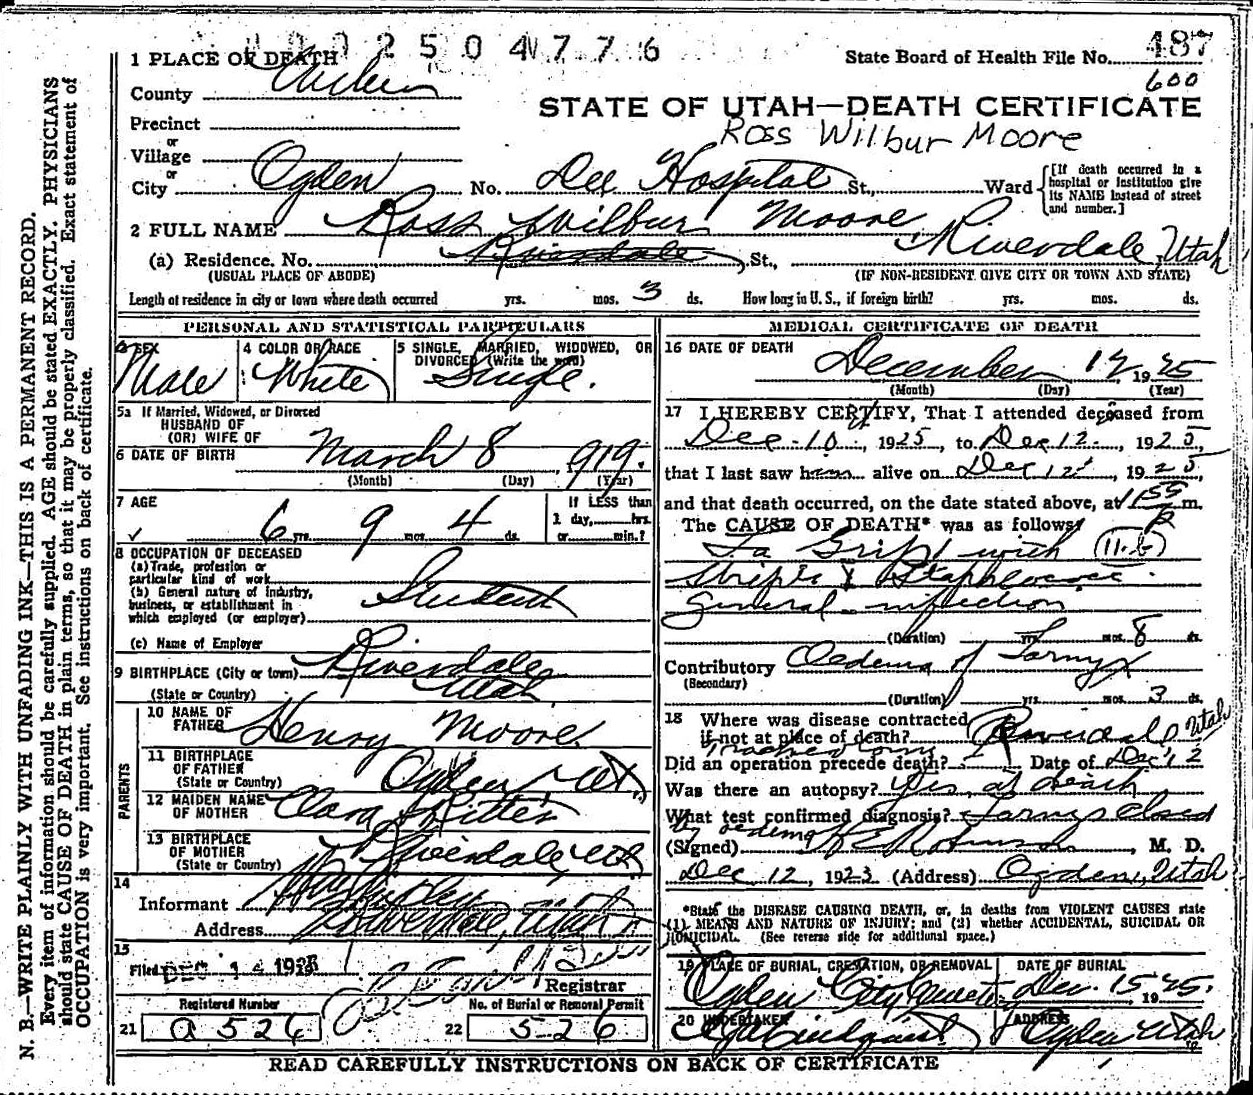 2504776
1 PLACE OF DEATH
State Board of Health File No. 487
600
County
STATE OF UTAH—DEATH CERTIFICATE
Precinct
Ross Wilbur Moore
or
Village
or
City Ogden No. Dee Hospital St., Ward
[If death occurred in a hospital or institution give its NAME instead of street and number.]
2 FULL NAME Ross Wilbur Moore
(a) Residence. No. Riverdale St., Riverdale, Utah
(USUAL PLACE OF ABODE) (IF NON-RESIDENT GIVE CITY OR TOWN AND STATE)
Length of residence in city or town where death occurred yrs. mos. 3 ds. How long in U. S., if foreign birth? yrs. mos. ds.
PERSONAL AND STATISTICAL PARTICULARS
3 SEX Male
4 COLOR OR RACE White
5 SINGLE, MARRIED, WIDOWED, OR DIVORCED (Write the word) Single.
5a If Married, Widowed, or Divorced
HUSBAND OF
(OR) WIFE OF
6 DATE OF BIRTH March 8, 1919.
(Month) (Day) (Year)
7 AGE
6 yrs. 9 mos. 4 ds.
If LESS than
1 day, hrs.
or min.?
8 OCCUPATION OF DECEASED
(a) Trade, profession or
particular kind of work
(b) General nature of industry,
business, or establishment in
which employed (or employer) Student
(c) Name of Employer
9 BIRTHPLACE (City or town) Riverdale
(State or Country) Utah
PARENTS
10 NAME OF
FATHER Henry Moore
11 BIRTHPLACE
OF FATHER Ogden, Ut.
(State or Country)
12 MAIDEN NAME
OF MOTHER Clara Ritter
13 BIRTHPLACE
OF MOTHER Riverdale Ut
(State or Country)
14
Informant
Address Riverdale, Utah
15
Filed DEC 14 1925
Registrar
Registered Number
21 a 526
No. of Burial or Removal Permit
22 526
MEDICAL CERTIFICATE OF DEATH
16 DATE OF DEATH
December 12, 1925
(Month) (Day) (Year)
17 I HEREBY CERTIFY, That I attended deceased from
Dec 10, 1925, to Dec 12, 1925,
that I last saw him alive on Dec 12, 1925
and that death occurred, on the date stated above, at 11 55 P m.
The CAUSE OF DEATH* was as follows:
La Grippe with 11-b
Strepto &
General infection
(Duration) yrs. mos. 8 ds.
Contributory Oedema of Larnyx
(Secondary)
(Duration) yrs. mos. 3 ds.
18 Where was disease contracted
if not at place of death? Riverdale Utah
Tracheotomy
Did an operation precede death? Date of Dec 12
Was there an autopsy? Yes, at death
What test confirmed diagnosis? Larnyx closed
by oedema
(Signed) M. D.
Dec 12, 1923 (Address) Ogden, Utah
*State the DISEASE CAUSING DEATH, or, in deaths from VIOLENT CAUSES state
(1) MEANS AND NATURE OF INJURY; and (2) whether ACCIDENTAL, SUICIDAL OR
HOMICIDAL. (See reverse side for additional space.)
19 PLACE OF BURIAL, CREMATION, OR REMOVAL
Ogden City
DATE OF BURIAL
Dec. 15, 1925.
20 UNDERTAKER
Lindquist
ADDRESS
Ogden Utah
READ CAREFULLY INSTRUCTIONS ON BACK OF CERTIFICATE
N. B.—WRITE PLAINLY WITH UNFADING INK—THIS IS A PERMANENT RECORD.
Every item of information should be carefully supplied. AGE should be stated EXACTLY. PHYSICIANS
should state CAUSE OF DEATH in plain terms, so that it may be properly classified. Exact statement of
OCCUPATION is very important. See instructions on back of certificate.